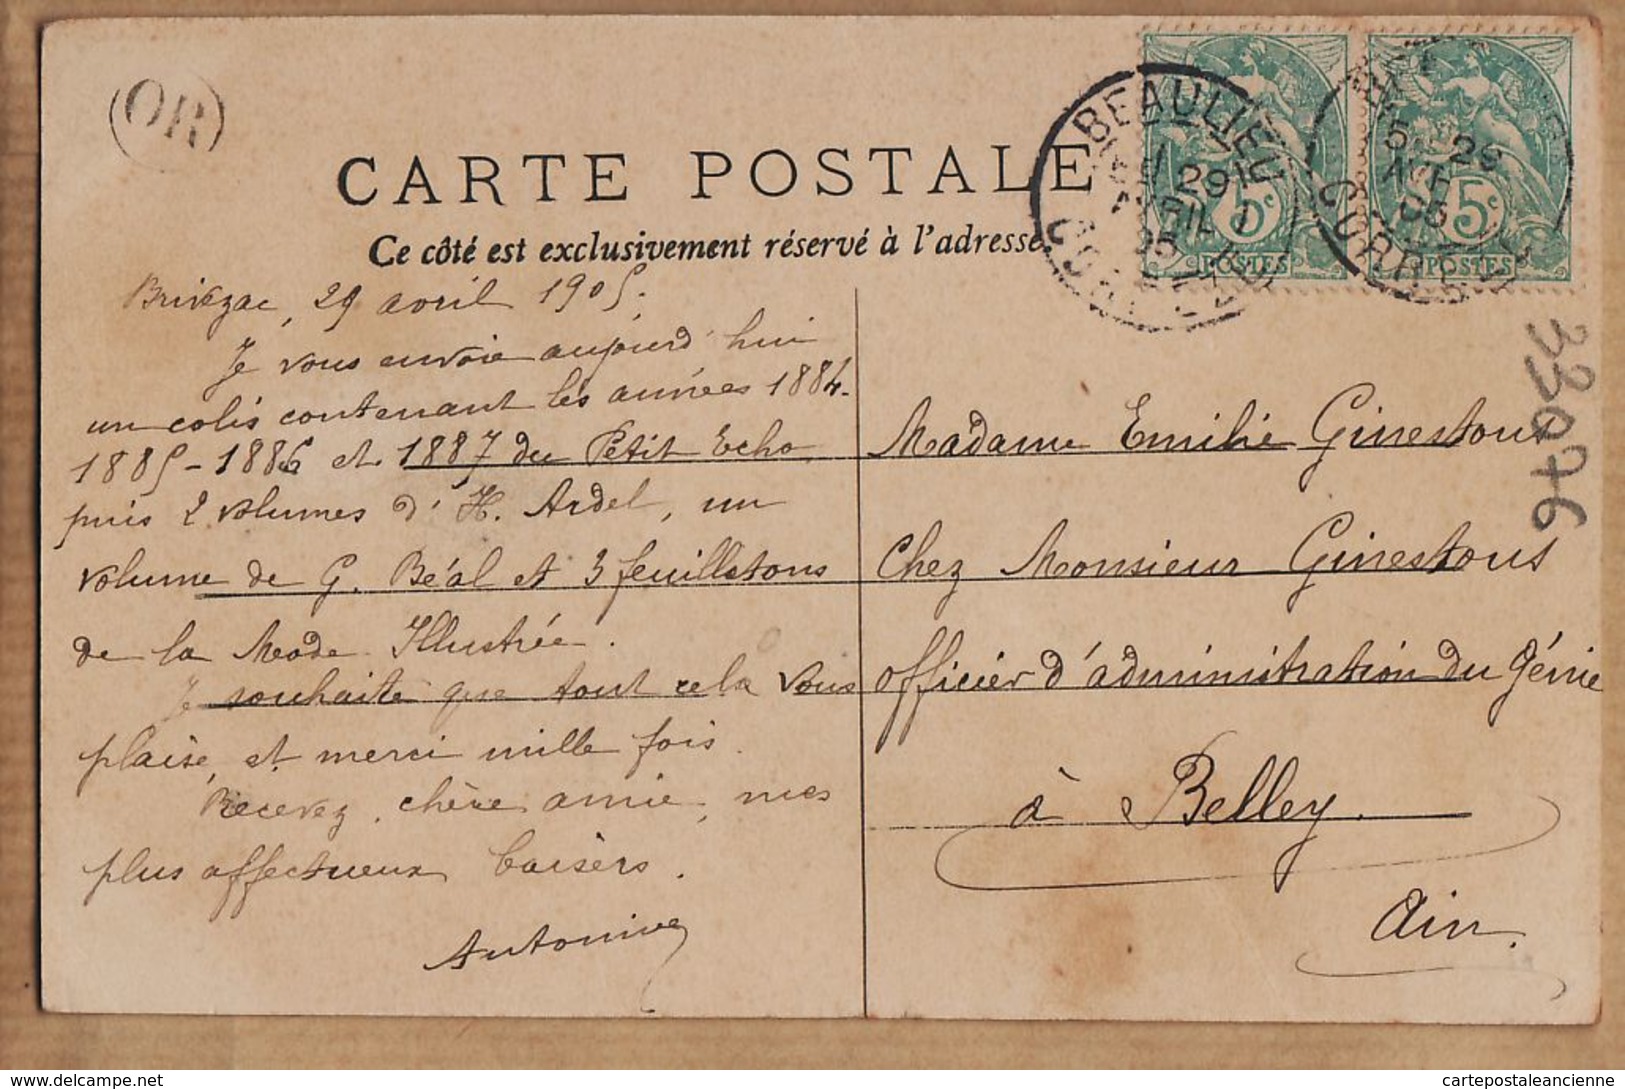 OR
CARTE POSTALE
Ce côté est exclusivement réservé à l'adresse
BEAULIEU
29
AVRIL
05
CORRÈZE
29
AVR
05
CORRÈZE
5c
POSTES
5c
POSTES
Brivezac, 29 avril 1905.
Je vous envoie aujourd'hui
un colis contenant les années 1884-
1885-1886 et 1887 du Petit Echo
puis 2 volumes d'H. Ardel, un
volume de G. Béal et 3 feuilletons
de la Mode Illustrée.
Je souhaite que tout cela vous
plaise, et merci mille fois.
Recevez, chère amie, mes
plus affectueux baisers.
Antonine
Madame Emilie Ginestous
Chez Monsieur Ginestous
officier d'administration du Génie
à Belley.
Ain.
cartepostaleancienne
delcampe.net